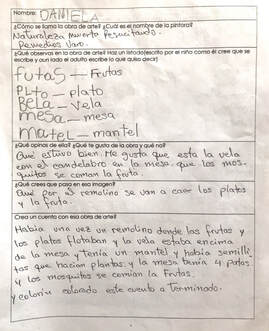 Nombre: DANIELA
¿Cómo se llama la obra de arte? ¿Cuál es el nombre de la pintora?
Naturaleza Muerta Resucitando.
Remedios Varo.
¿Qué observas en la obra de arte? Haz un listado(escrito por el niño como él cree que se
escribe y aun lado el adulto escribe lo que quiso decir)
futas — Frutas
Plto — plato
BeLa — Vela
mesa — mesa
matel — mantel
¿Qué opinas de ella? ¿Qué te gusta de la obra y qué no?
Que estuvo bien. Me gusta que esta la vela
con el candelabro en la mesa. que los mos-
quitos se coman la fruta.
¿Qué crees que pasa en esa imagen?
Que por el remolino se van a caer los platos
y la fruta.
Crea un cuento con esa obra de arte?
Habia una vez un remolino donde las frutas y
los platos flotaban y la vela estaba encima
de la mesa y Tenía un mantel y había semilli
tas que hacían plantas y la mesa tenía 4 patas
y los mosquitos se comían la Frutas.
y colorín colorado este cuento a Terminado.